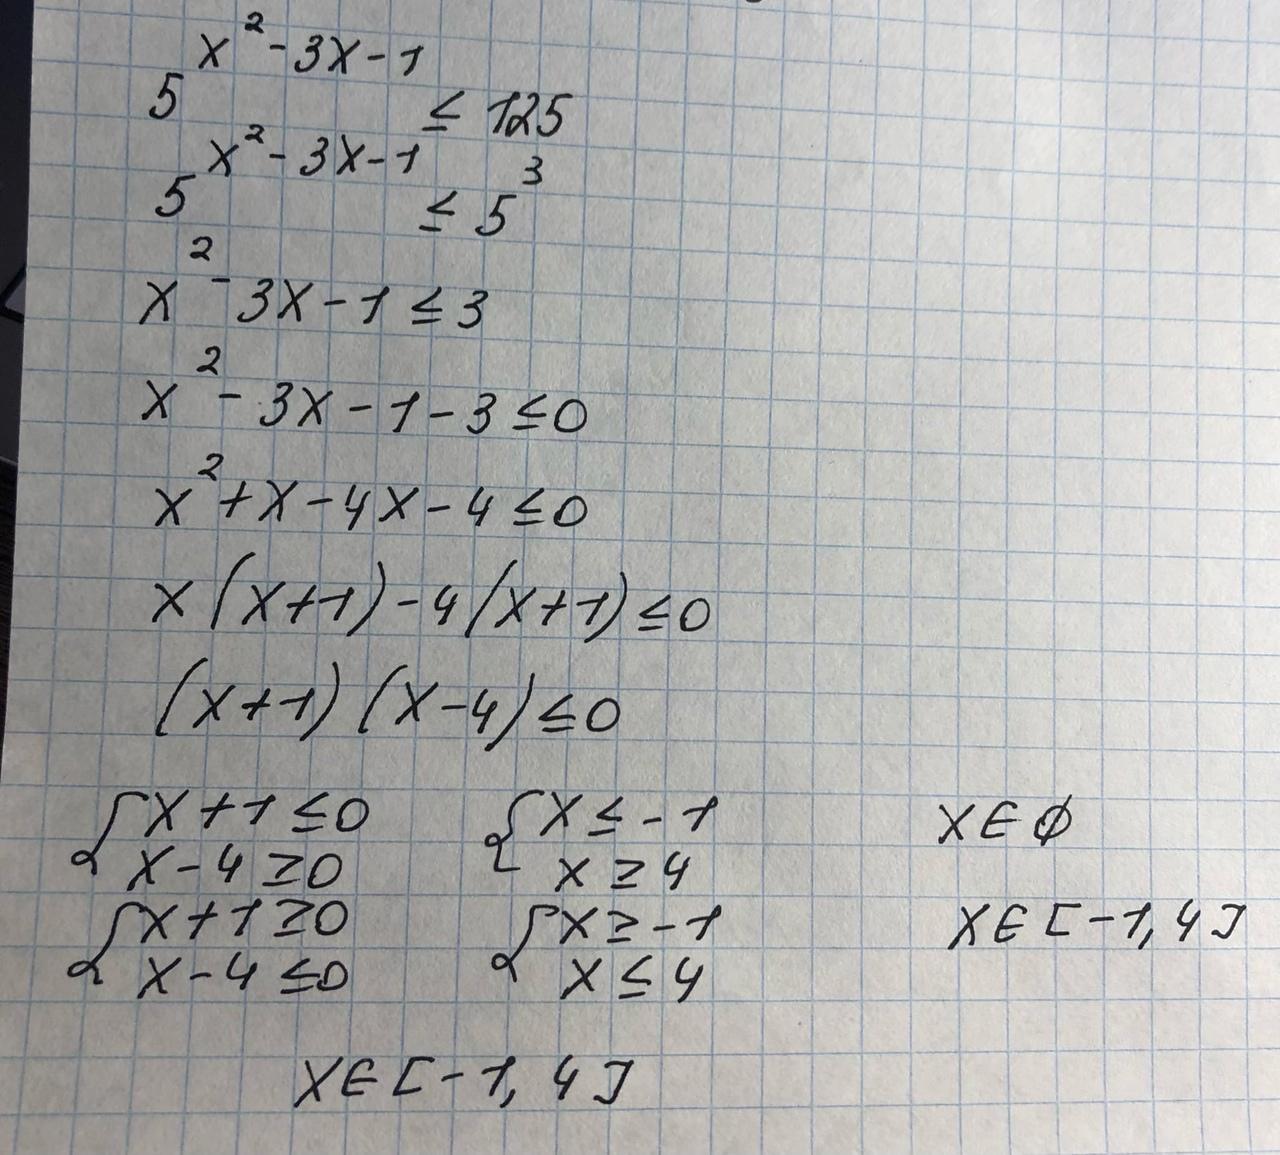 5^{x^2-3x-1} ≤ 125
5^{x^2-3x-1} ≤ 5^3
x^2-3x-1≤3
x^2-3x-1-3≤0
x^2+x-4x-4≤0
x(x+1)-4(x+1)≤0
(x+1)(x-4)≤0
{x+1≤0 {x≤-1 x∈∅
x-4≥0 x≥4
{x+1≥0 {x≥-1 x∈[-1,4]
x-4≤0 x≤4
x∈[-1,4]